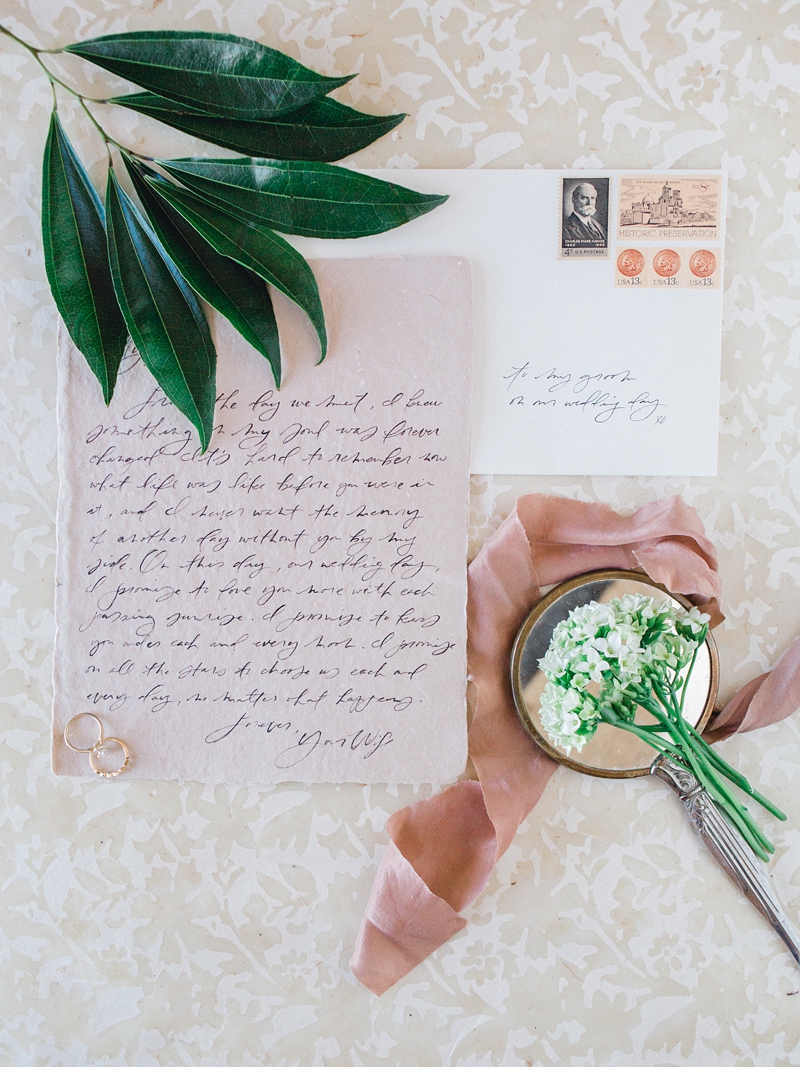 From the day we met, I knew
something in my soul was forever
changed. It's hard to remember now
what life was like before you were in
it, and I never want the memory
of another day without you by my
side. On this day, our wedding day,
I promise to love you more with each
passing sunrise. I promise to kiss
you under each and every moon. I promise
on all the stars to choose us each and
every day, no matter what happens.
Forever,
Your Wife
CHARLES EVANS HUGHES
1862 1948
4¢ U.S. POSTAGE
US 8c
HISTORIC PRESERVATION
USA 13c USA 13c USA 13c
to my groom
on our wedding day
xo